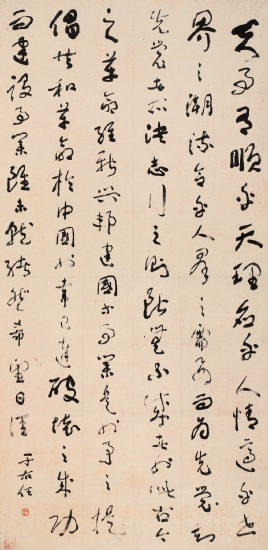 夫事有順乎天理應乎人情適乎世
界之潮流合乎人群之需要而為先知
先覺者所決志行之則斷無不成者也此古今
之革命維新興邦建國等事業是也予之提
倡共和革命於中國也幸已達破壞之成功
而建設事業雖未就緒然希望日
于右任